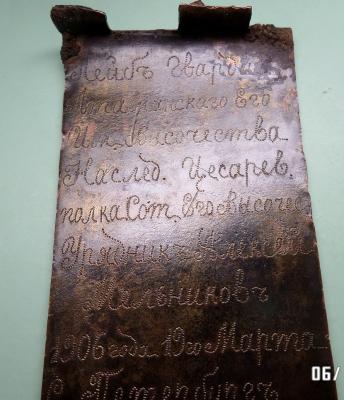 Лейбъ Гвардіи
Атаманскаго Его
Им. Высочества
Наслед. Цесарев.
полка Сот. Его высочес
Урядникъ Алексей
Мельниковъ
1906 года 19го Марта
С. Петербургъ
06/